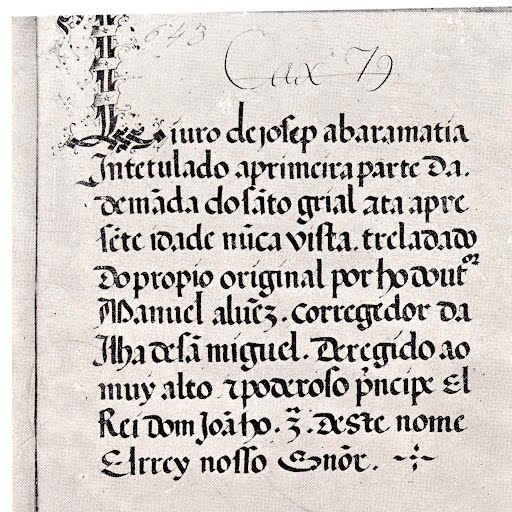 643
Cax 79
Liuro de josep abaramatia
Intetulado aprimeira parte da.
demãda do sãto grial ata apre
sẽte idade nũca vista. treladado
do propio original por ho doutor
Manuel aluẽz. corregedor da
Ilha de sã miguel. Deregido ao
muy alto ⁊ poderoso p̃ncipe El
Rei dom Joãho. 3̃. deste nome
Elrrey nosso Sñor.